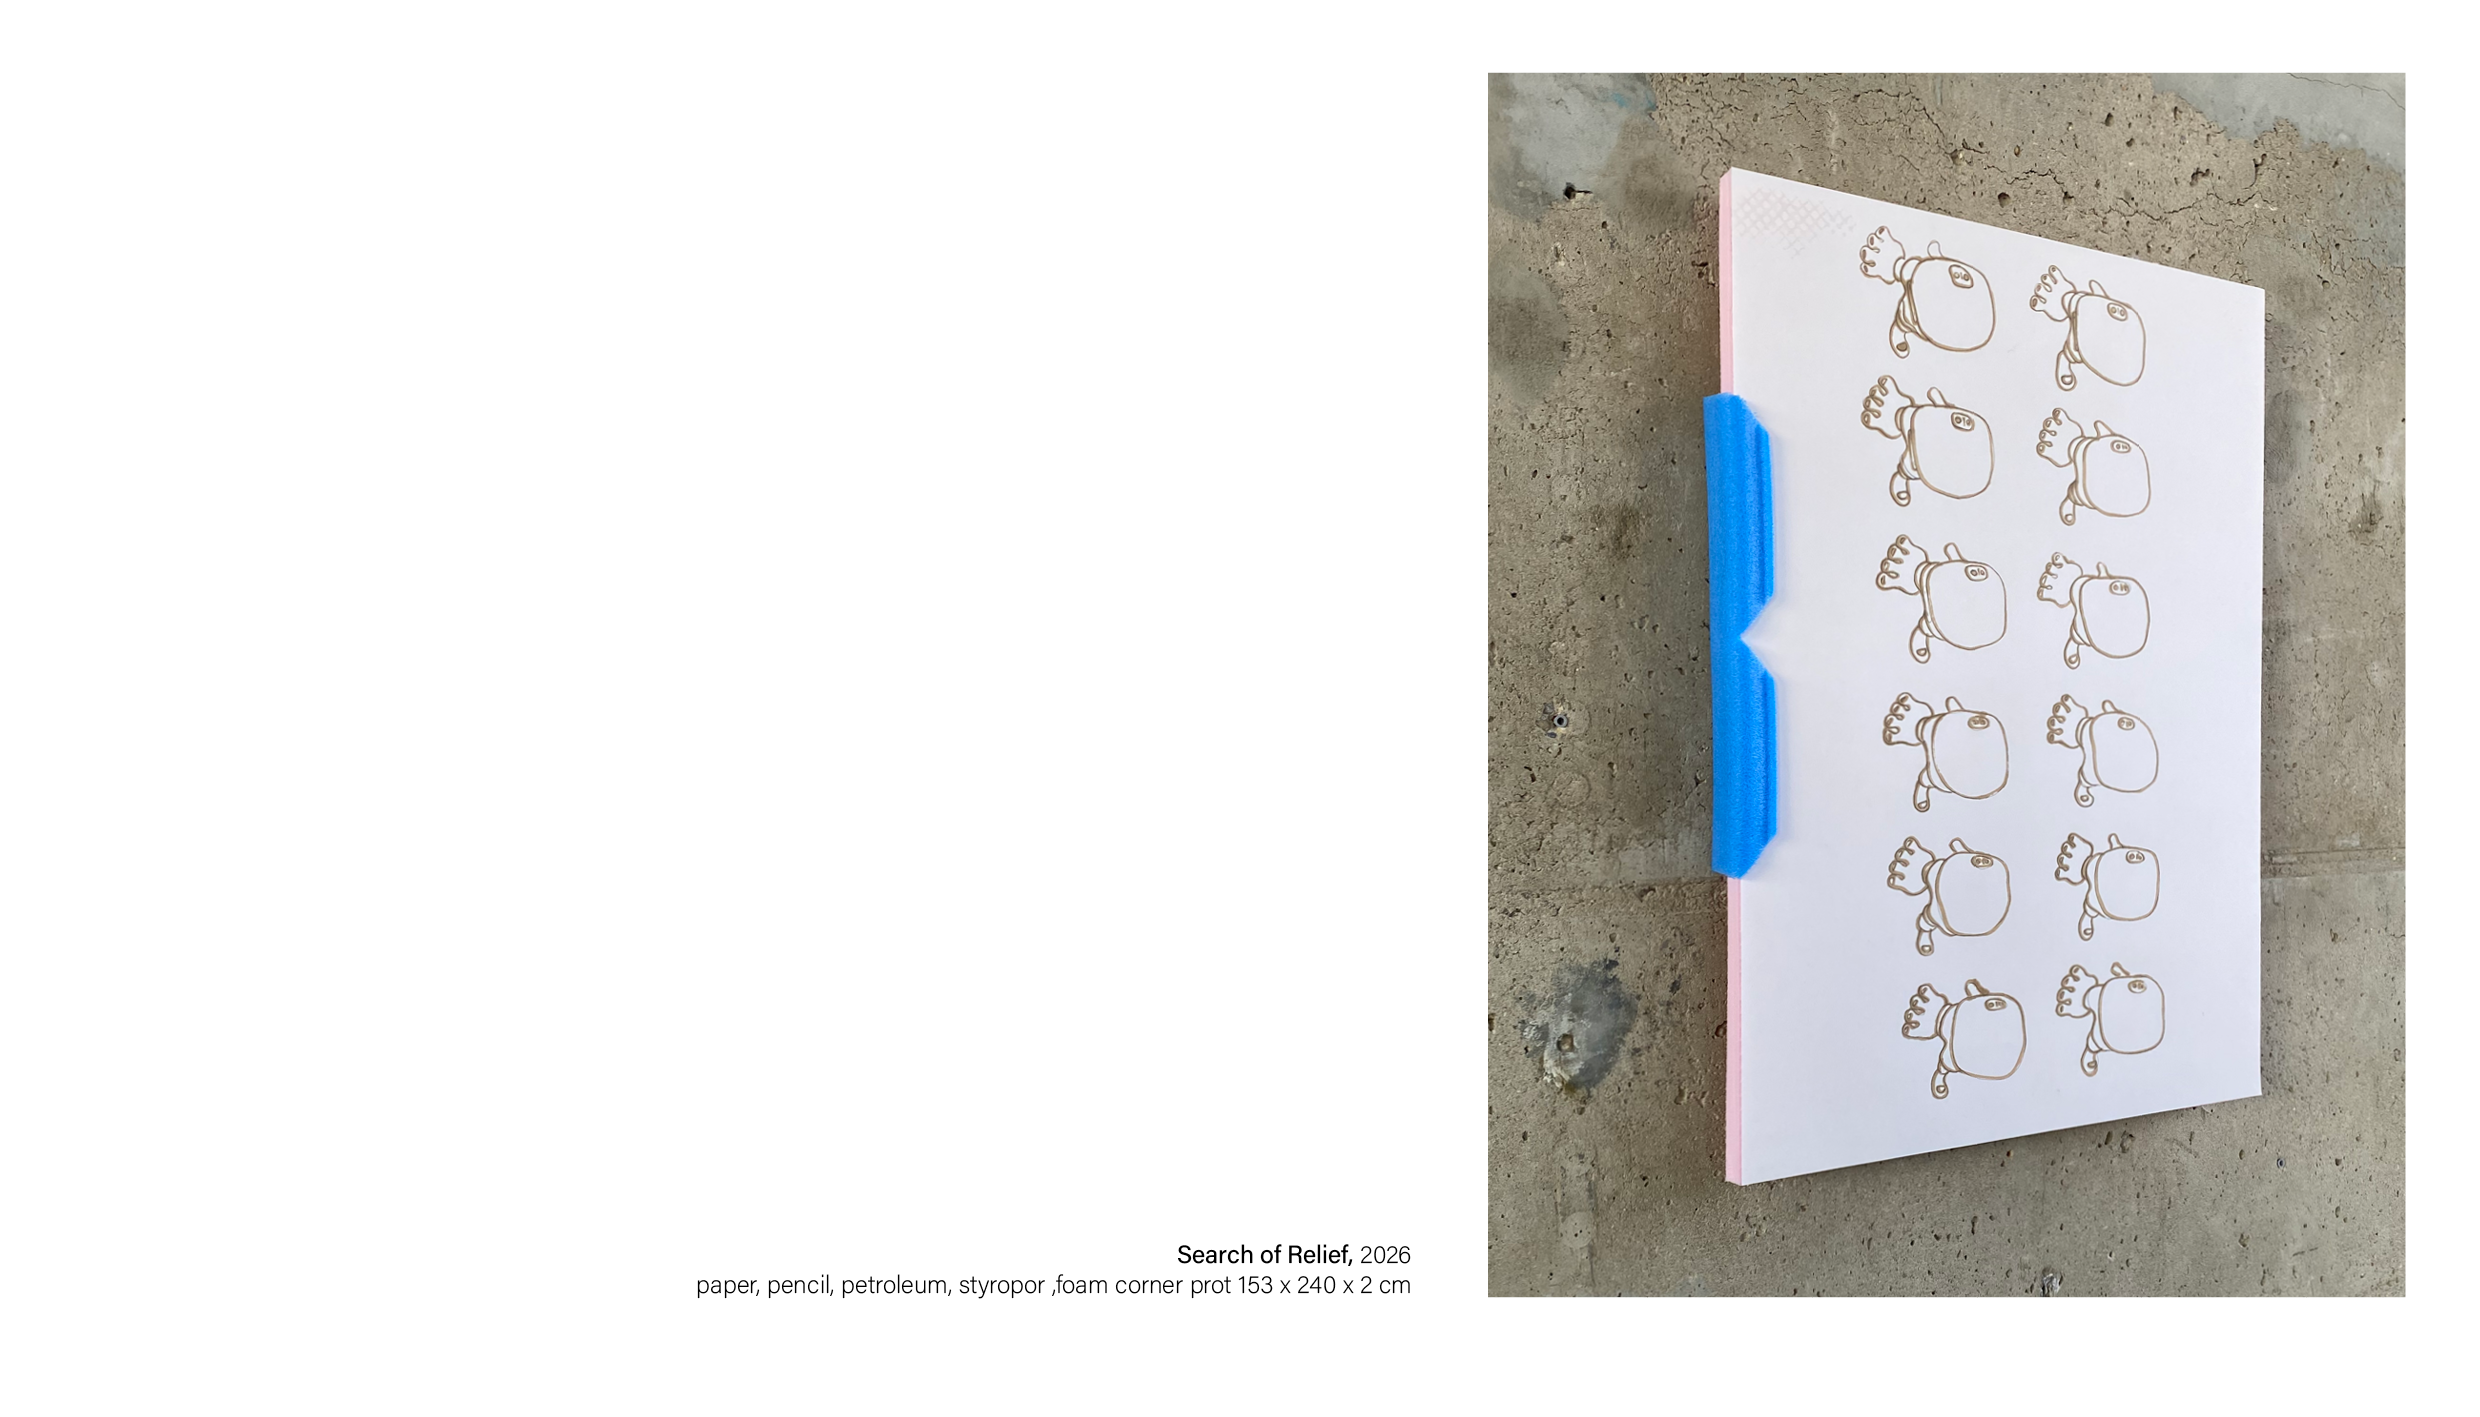 Search of Relief, 2026
paper, pencil, petroleum, styropor ,foam corner prot 153 x 240 x 2 cm